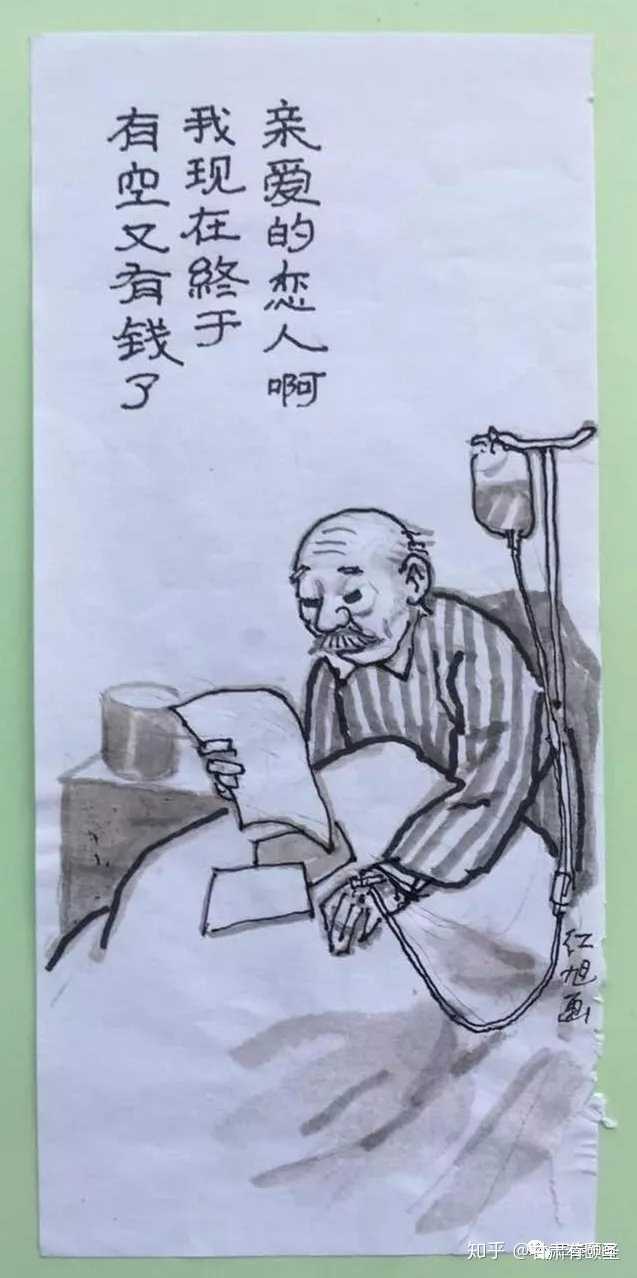 亲爱的恋人啊
我现在終于
有空又有钱了
红旭画
知乎 @